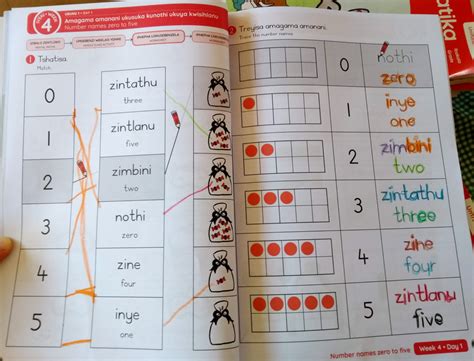 4
Amagama amanani ukusuka kunothi ukuya kwisihlanu
Number names zero to five
1 Tshatisa.
Match.
0
1
2
3
4
5
zintathu
three
zintlanu
five
zimbini
two
nothi
zero
zine
four
inye
one
2 Treyisa amagama amanani.
Trace the number names.
0
nothi
zero
1
inye
one
2
zimbini
two
3
zintathu
three
4
zine
four
5
zintlanu
five
Number names zero to five
Week 4 • Day 1
atika